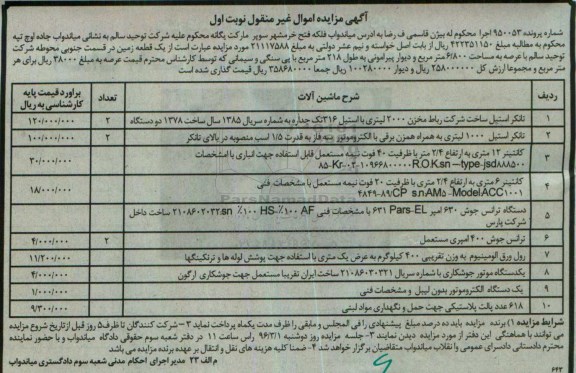 آگهی مزایده اموال غیر منقول نوبت اول
شماره پرونده ۹۵۰۰۵۳ اجرا محکوم له بیژن قاسمی ف رضا به آدرس میاندواب فلکه فتح خرمشهر سوپر مارکت یگانه محکوم علیه شرکت توحید سالم به نشانی میاندواب جاده اوچ تپه
محکوم به مطالبه مبلغ ۴۲۲۳۵۱۱۵۰ ریال از بابت اصل خواسته و نیم عشر دولتی به مبلغ ۲۱۱۱۷۵۸۸ مورد مزایده عبارت است از یک قطعه زمین در قسمت جنوبی محوطه شرکت
توحید سالم با عرصه به مساحت ۶۸۰۰ متر مربع و دیوار پیرامونی به طول ۲۱۸ متر مربع با پی سنگی و سیمانی که توسط کارشناس محترم قیمت عرصه به مبلغ ۳۸۰۰۰ ریال برای هر
متر مربع و مجموعا ارزش کل ۲۵۸۰۰۰۰۰۰ ریال و دیوار ۱۰۰۲۸۰۰۰۰ ریال جمعا ۳۵۸۶۸۰۰۰۰ ریال قیمت گذاری شده است
ردیف شرح ماشین آلات تعداد برآورد قیمت پایه کارشناسی به ریال
۱ تانکر استیل ساخت شرکت رباط مخزن ۲۰۰۰ لیتری با استیل ۳۱۶ تک جداره به شماره سریال ۱۳۸۵ سال ساخت ۱۳۷۸ دو دستگاه ۲ ۱۲۰/۰۰۰/۰۰۰
۲ تانکر استیل ۱۰۰۰ لیتری به همراه همزن برقی با الکتروموتور سه فاز به قدرت ۱/۵ اسب منصوبه در بالای تانکر ۲ ۱۰۰/۰۰۰/۰۰۰
۳ کانتینر ۱۲ متری به ارتفاع ۲/۴ متر با ظرفیت ۴۰ فوت نیمه مستعمل قابل استفاده جهت انباری با مشخصات
R.O.K.sn – type-jsd۸۸۸۵۰۰ ۸۵-Kr-۰۲-۱۰۹۶۶۸۰۰۰۰ ۳۰/۰۰۰/۰۰۰
۴ کانتینر ۶ متری به ارتفاع ۲/۴ متر با ظرفیت ۲۰ فوت نیمه مستعمل با مشخصات فنی
Model ACC۱۰۰۱ - s.nAM۵ ۴۸۴۹-۸۹/CP ۱۸/۰۰۰/۰۰۰
۵ دستگاه ترانس جوش ۶۳۰ آمپر Pars-EL ۶۳۱ با مشخصات فنی ۱۰۰٪ HS-٪۱۰۰ AF s.n ۲۱۰۸۶۰۲۰۳۲ ساخت داخل
شرکت پارس
۶ ترانس جوش ۴۰۰ آمپری مستعمل ۲ ۴/۰۰۰/۰۰۰
۷ رول ورق آلومینیوم به وزن تقریبی ۴۰۰ کیلوگرم به عرض یک متری با استفاده جهت پوشش لوله ها و ترنکینگها ۱۱/۲۰۰/۰۰۰
۸ یکدستگاه موتور جوشکاری با شماره سریال ۲۱۰۸۶۰۲۰۳۲۱ ساخت ایران تقریبا مستعمل جهت جوشکاری آرگون ۴/۰۰۰/۰۰۰
۹ یک دستگاه الکتروموتور بدون لیبل و مشخصات فنی ۱/۰۰۰/۰۰۰
۱۰ ۶۱۸ عدد پالت پلاستیکی جهت حمل و نگهداری مواد لبنی ۹/۳۰۰/۰۰۰
شرایط مزایده ۱) برنده مزایده باید ده درصد مبلغ پیشنهادی را فی المجلس و مابقی را ظرف مدت یکماه پرداخت نماید ۲ – شرکت کنندگان تا ظرف ۵ روز قبل از تاریخ شروع مزایده
می توانند با هماهنگی این دفتر از مورد مزایده دیدن نمایند ۳ – جلسه مزایده روز دوشنبه ۹۶/۳/۱ راس ساعت ۱۱ در دفتر شعبه سوم حقوقی دادگاه میاندواب و با حضور نماینده
محترم دادستانی دادسرای عمومی و انقلاب میاندواب متقاضیان برگزار خواهد شد ۴ – ضمنا کلیه هزینه های نقل و انتقال بر عهده برنده مزایده می باشد
م الف ۲۳ مدیر اجرای احکام مدنی شعبه سوم دادگستری میاندواب
۶۴۳